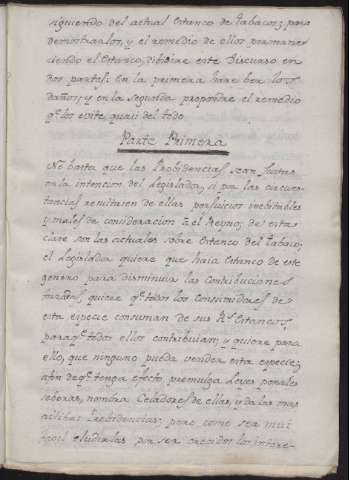 siguiendo del actual Estanco de Tabacos; para
demostrarlos, y el remedio de ellos permane-
ciendo el Estanco, dibidire este Discurso en
dos partes: En la primera haré ber los
daños; y en la segunda propondre el remedio
qᵉ los evite quasi del todo
Parte Primera
No basta que las Probidencias sean justas
en la intencion del Legislador, si por las circuns-
tancias resultaren de ellas perjuicios inebitables
y males de consideracion al Reyno; de esta
clase son las actuales sobre Estanco del Tabaco;
el Legislador quiere que haia Estanco de este
genero para disminuir las Contribuciones
quiere qᵉ todos los Consumidores de
esta especie consuman de sus Rˢ Estancos,
paraqᵉ todos ellos contribuian; y quiere para
ello, que ninguno pueda vender esta especie;
afin de qᵉ tenga efecto, promulga Leyes penales
seberas, nombra Celadores de ellas, y da las mas
Probidencias; pero como sea mui
facil eludirlas por ser crecidos los intere-